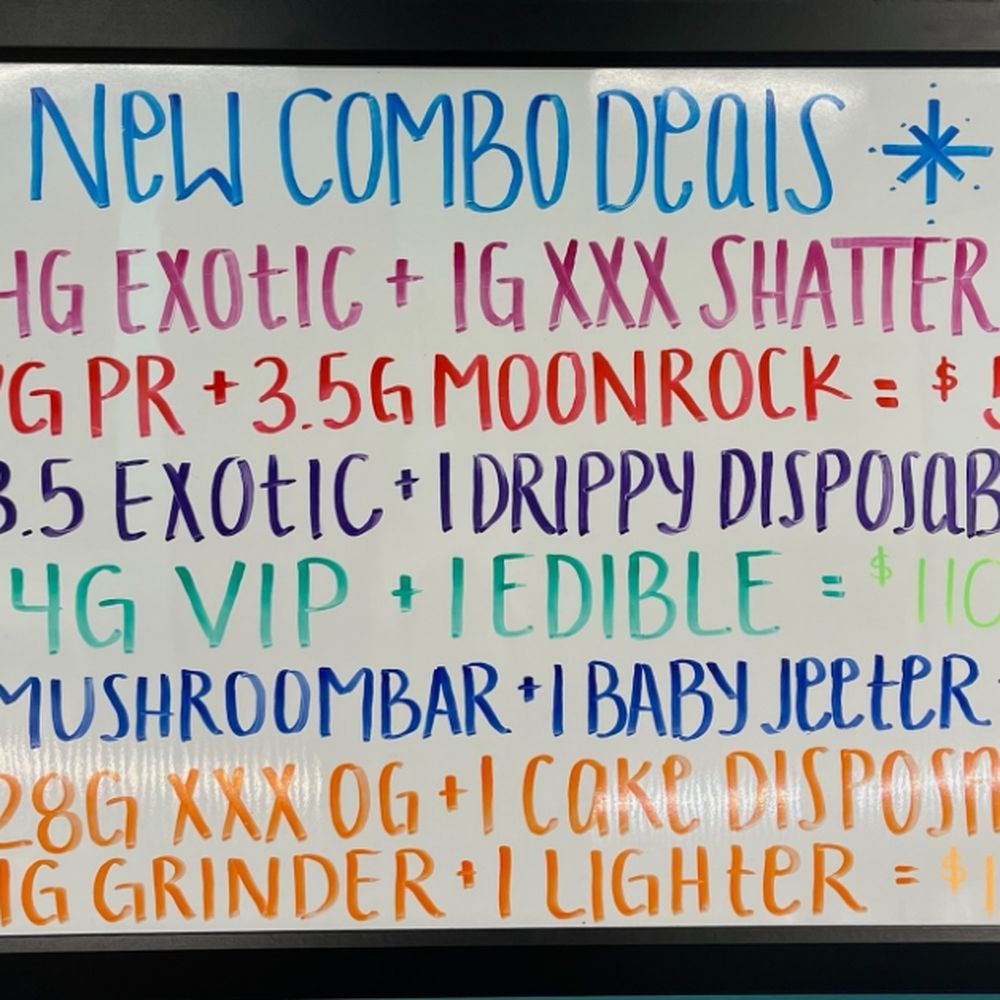 New COMBO Deals
4G EXOtIC + 1G XXX SHATTER
G PR + 3.5G MOONROCK = $ 5
3.5 EXOtIC + 1 DRIPPY DISPOSaB
4G VIP + 1 EDIBLE = $ 110
MUSHROOMBAR + 1 BABY JeeteR
28G XXX OG + 1 Cake DISPOSA
1G GRINDER + 1 LIGHteR = $ 1